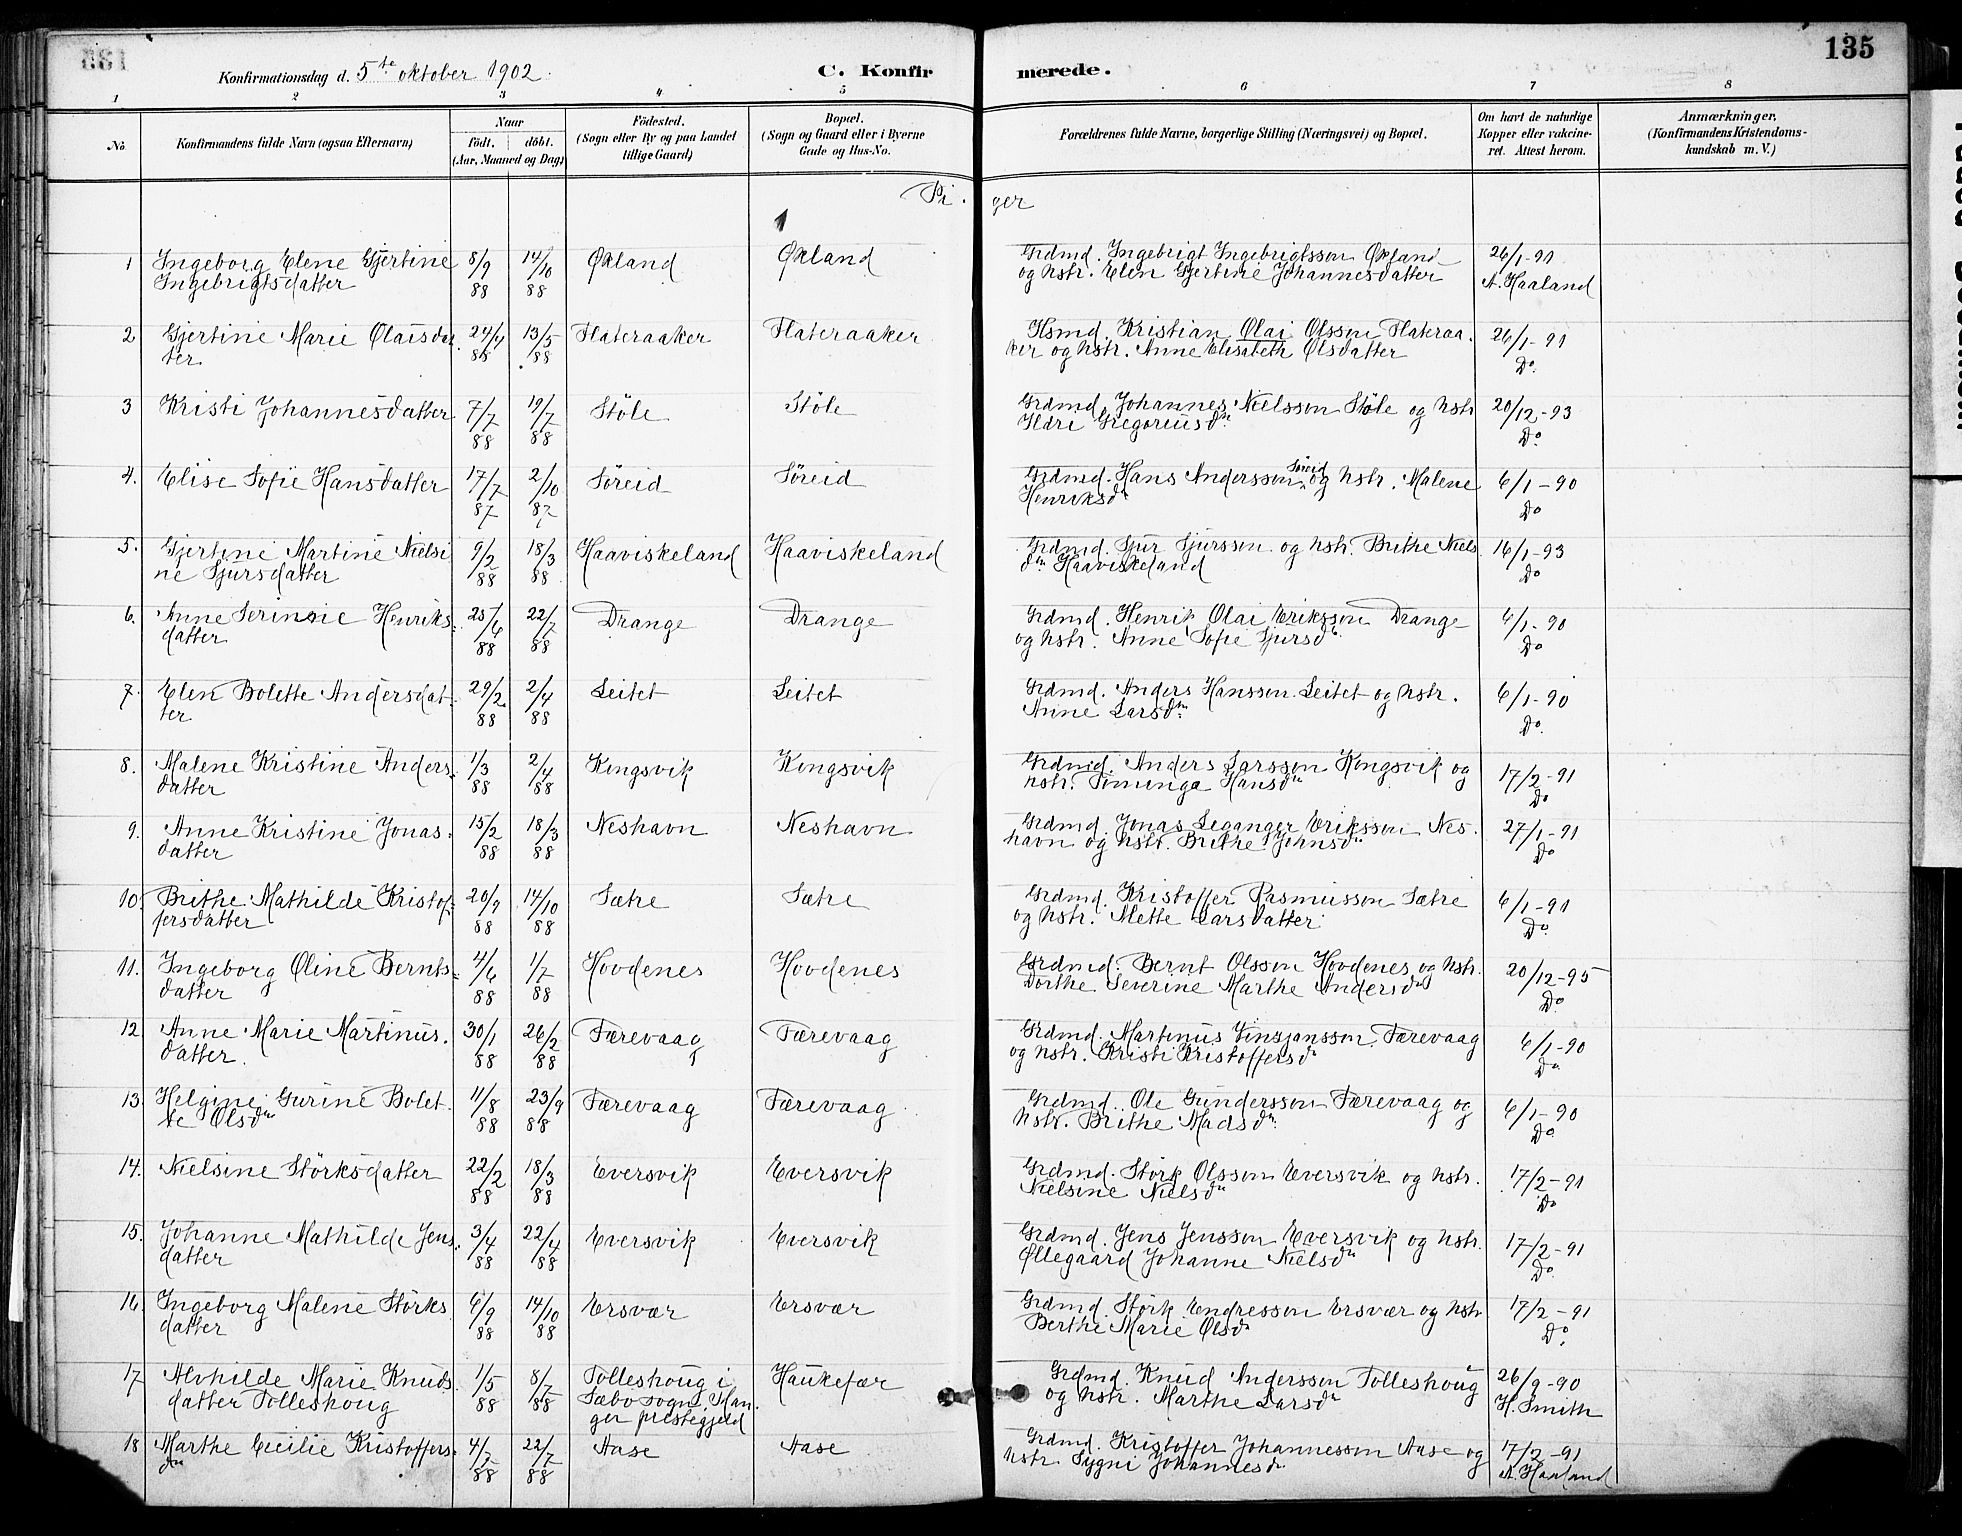 135
Konfirmationsdag d. 5te oktober 1902.
C. Konfirmerede.
1 2 3 4 5 6 7 8
No
Konfirmandens fulde Navn (ogsaa Efternavn)
Naar
födt. döbt.
(Aar, Maaned og Dag)
Födested.
(Sogn eller By og paa Landet
tillige Gaard)
Bopæl.
(Sogn og Gaard eller i Byerne
Gade og Hus-No.
Forældrenes fulde Navne, borgerlige Stilling (Næringsvei) og Bopæl.
Om havt de naturlige
Kopper eller vakcine-
ret. Attest herom.
Anmærkninger.
(Konfirmandens Kristendoms-
kundskab m. V.)
Pi. ger
1 Ingeborg Elene Gjertine 8/9 14/10 Økland Økland Grdmd. Ingebrigt Ingebrigtsson Økland 26/1-91
Ingebrigtsdatter 88 88 og hstr. Elen Gjertine Johannesdatter A. Haaland
2 Gjertine Marie Olaisdat 24/4 13/5 Flateraaker Flateraaker Hsmd. Kristian Olai Olsson Flateraa. 26/1-91
ter 88 88 ker og hstr. Anne Elisabeth Olsdatter Do.
3 Kristi Johannesdatter 7/7 19/7 Støle Støle Grdmd. Johannes Nielsson Støle og hstr 20/12-93
88 88 Ildri Gregoriusdtr Do
4. Elise Sofie Hansdatter 17/7 2/10 Søreid Søreid Grdmd. Hans Andersson Søreid og hstr. Malene 6/1-90
87 87 Henriksdtr Do
5. Gjertine Martine Nielsi 9/2 18/3 Haaviskeland Haaviskeland Grdmd. Sjur Sjursson og hstr. Brithe Niels 16/1-93
ne Sjursdatter 88 88 dtr Haaviskeland Do
6. Anne Serinsie Henriks: 25/6 22/7 Drange Drange Grdmd. Henrik Olai Eriksson Drange 6/1-90
datter 88 88 og hstr. Anne Sofie Sjursdtr Do
7. Elen Bolette Andersdat: 29/2 2/4 Leitet Leitet Grdmd. Anders Hansson Leitet og hstr. 6/1-90
ter 88 88 Anne Larsdtr Do.
8. Malene Kristine Anders 1/3 2/4 Kongsvik Kongsvik Grdmd. Anders Larsson Kongsvik og 17/2-91
datter 88 88 hstr. Hansdtr Do
9. Anne Kristine Jonas. 15/2 18/3 Neshavn Neshavn Grdmd. Jonas Leganger Eriksson Nes. 27/1-91
datter 88 88 havn og hstr. Brithe Johnsdtr Do
10. Brithe Mathilde Kristof: 20/9 14/10 Sætre Sætre Grdmd. Kristoffer Rasmusson Sætre 6/1-91
fersdatter 88 88 og hstr. Mette Larsdatter Do
11. Ingeborg Oline Bernts= 4/6 1/7 Hovdenes Hovdenes Grdmd. Bernt Olsson Hovdenes og hstr. 20/12-95
datter 88 88 Dorthe Severine Marthe Andersdtr Do
12. Anne Marie Martinus. 30/1 26/2 Færevaag Færevaag Grdmd. Martinus Vinsjansson Færevaag 6/1-90
datter. 88 88 og hstr. Kristi Kristoffersdtr Do
13. Helgine Gurine Bolet. 11/8 23/9 Færevaag Færevaag Grdmd. Ole Gundersson Færevaag og 6/1-90
te Olsdtr 88 88 hstr. Brithe Madsdtr Do
14. Nielsine Størksdatter 22/2 18/3 Eversvik Eversvik Grdmd. Størk Olsson Eversvik og hstr. 17/2-91
88 88 Nielsine Nielsdtr Do
15. Johanne Mathilde Jens. 3/4 22/4 Eversvik Eversvik Grdmd. Jens Jensson Eversvik og hstr. 17/2-91
datter 88 88 Øllegaard Johanne Nielsdtr Do
16. Ingeborg Malene Størks 6/9 14/10 Ersvær Ersvær Grdmd. Størk Endresson Ersvær og hstr 17/2-91
datter 88 88 Berthe Marie Olsdtr Do.
17 Alvhilde Marie Knuds. 1/5 8/7 Tolleshoug i Haukefær Grdmd. Knud Andersson Tolleshoug 26/9-90
datter Tolleshoug 88 88 Sæbo sogn, Man. og hstr. Marthe Larsdtr H. Smith
ger prestegjeld
18 Marthe Cecilie Kristoffers: 4/7 22/7 Aase Aase Grdmd. Kristoffer Johannesson Aase og 17/2-91
dtr 88 88 hstr. Sygni Johannesdtr A. Haaland